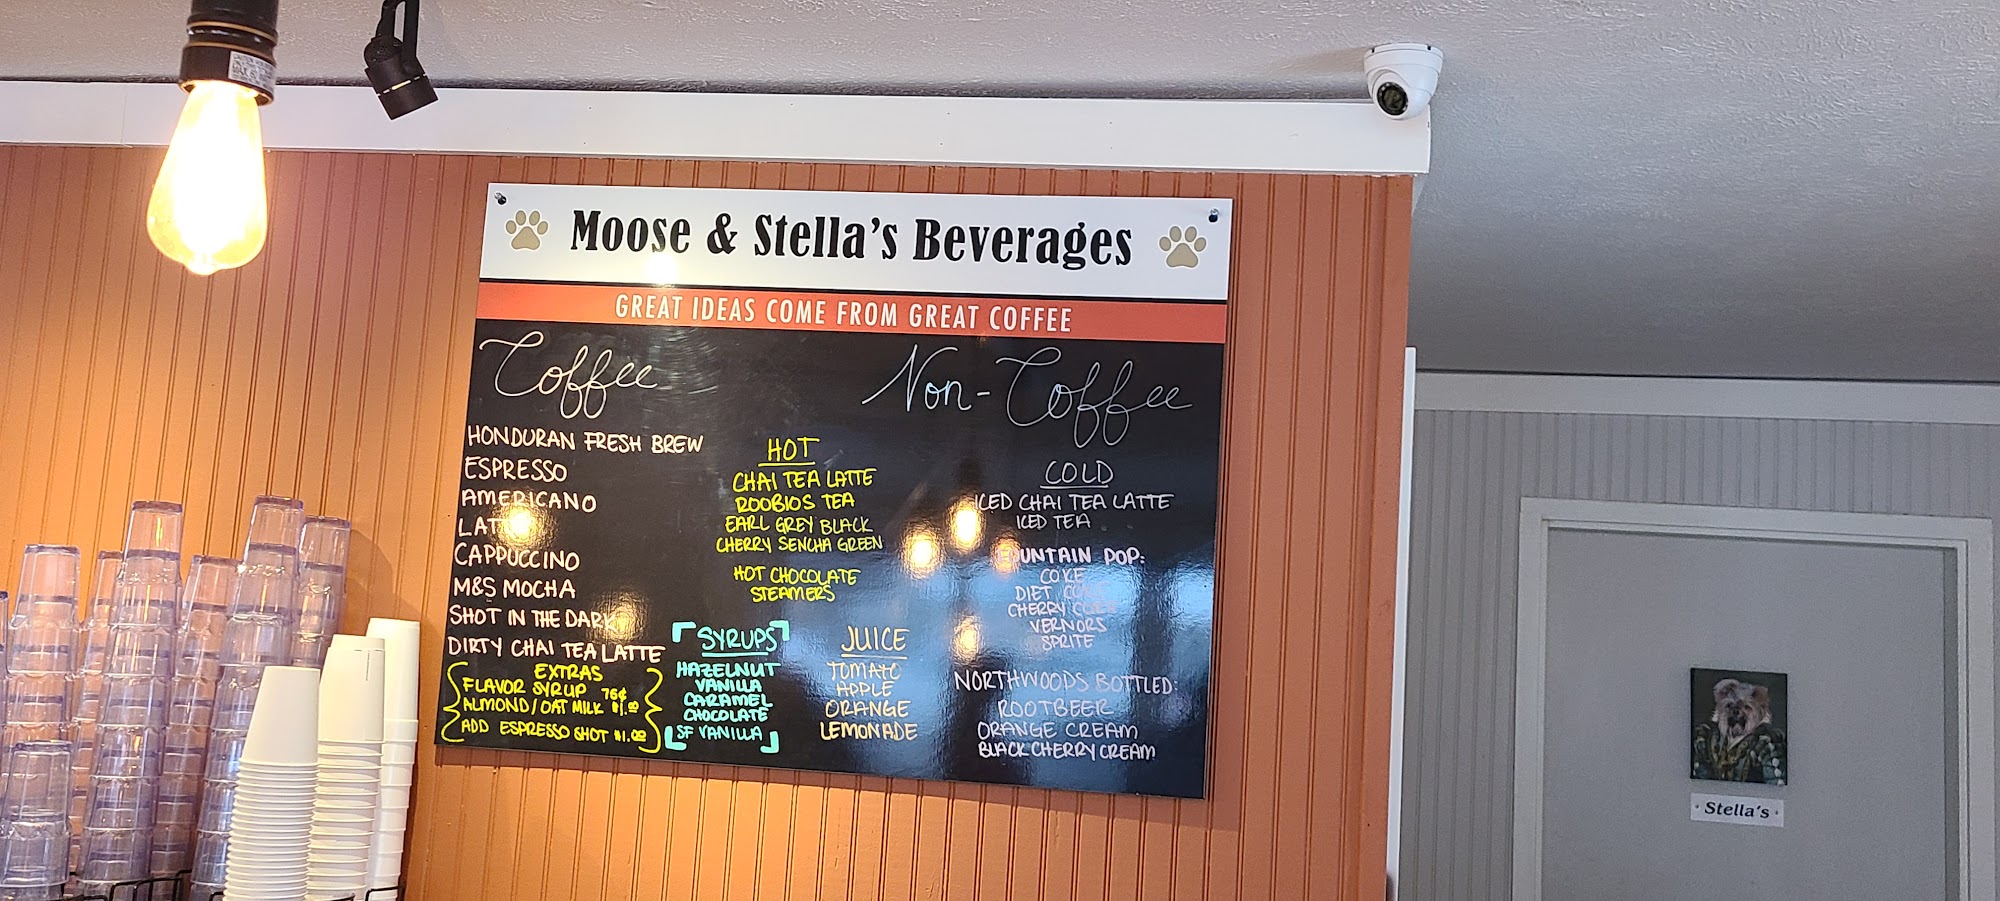 Moose & Stella's Beverages
GREAT IDEAS COME FROM GREAT COFFEE
Coffee
HONDURAN FRESH BREW
ESPRESSO
AMERICANO
LATTE
CAPPUCCINO
M&S MOCHA
SHOT IN THE DARK
DIRTY CHAI TEA LATTE
EXTRAS
FLAVOR SYRUP 75¢
ALMOND/OAT MILK $1.00
ADD ESPRESSO SHOT $1.00
Non-Coffee
HOT
CHAI TEA LATTE
ROOBIOS TEA
EARL GREY BLACK
CHERRY SENCHA GREEN
HOT CHOCOLATE
STEAMERS
SYRUPS
HAZELNUT
VANILLA
CARAMEL
CHOCOLATE
SF VANILLA
JUICE
TOMATO
APPLE
ORANGE
LEMONADE
COLD
ICED CHAI TEA LATTE
ICED TEA
FOUNTAIN POP:
COKE
DIET COKE
CHERRY COKE
VERNORS
SPRITE
NORTHWOODS BOTTLED:
ROOTBEER
ORANGE CREAM
BLACK CHERRY CREAM
Stella's